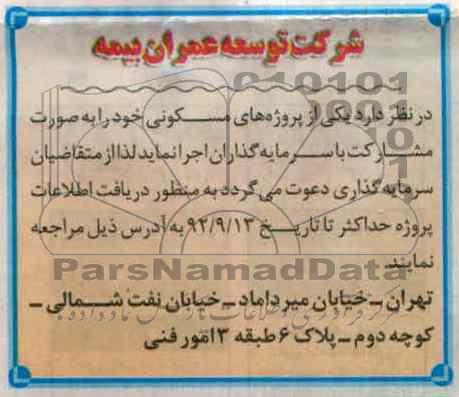 شرکت توسعه عمران بیمه
در نظر دارد یکی از پروژه‌های مسکونی خود را به صورت
مشارکت با سرمایه گذاران اجرا نماید لذا از متقاضیان
سرمایه گذاری دعوت می گردد به منظور دریافت اطلاعات
پروژه حداکثر تا تاریخ ۹۲/۹/۱۳ به آدرس ذیل مراجعه
نمایند.
ParsNamadData
تهران ـ خیابان میرداماد ـ خیابان نفت شمالی ـ
کوچه دوم ـ پلاک ۶ طبقه ۳ امور فنی